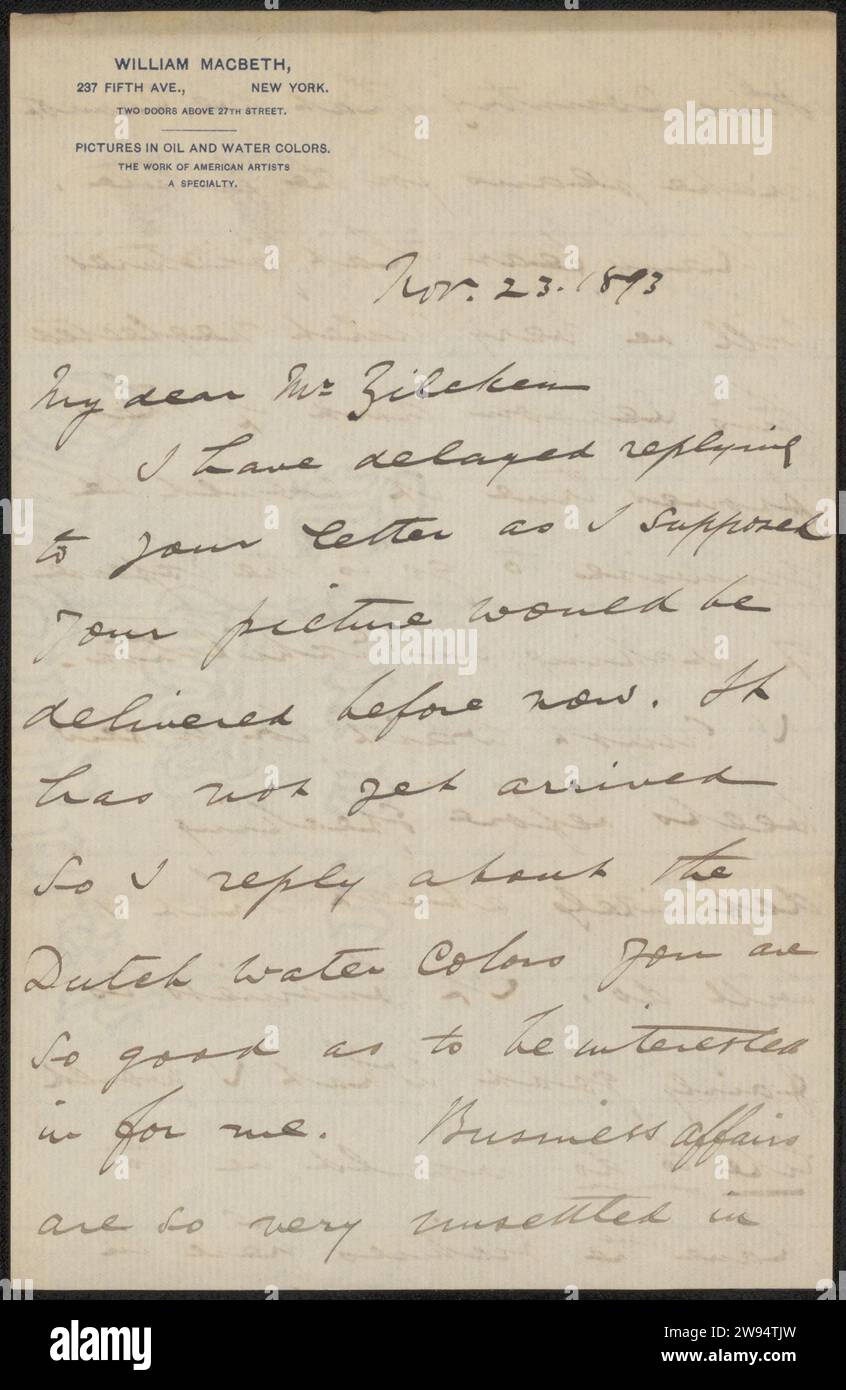 WILLIAM MACBETH,
237 FIFTH AVE., NEW YORK.
TWO DOORS ABOVE 27TH STREET.
PICTURES IN OIL AND WATER COLORS.
THE WORK OF AMERICAN ARTISTS
A SPECIALTY.
Nov. 23. 1893
My dear Mr Zilcken
I have delayed replying
to your letter as I supposed
your picture would be
delivered before now. It
has not yet arrived
so I reply about the
Dutch water colors you are
so good as to be interested
in for me. Business affairs
are so very unsettled in
alamy
Image ID: 2W94TJW
www.alamy.com